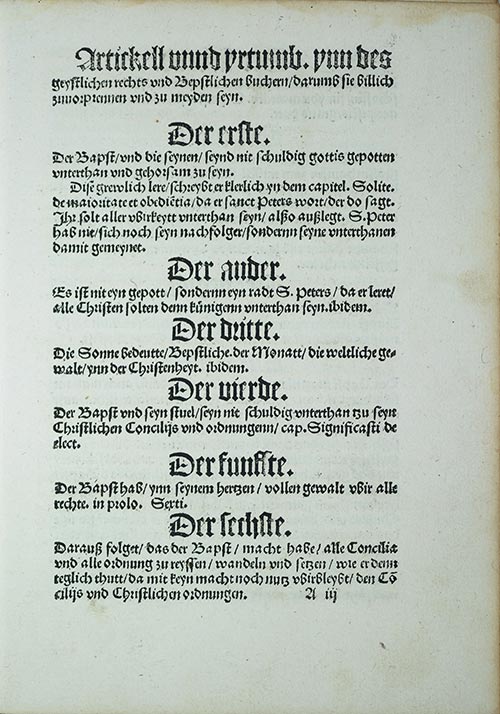 Artickell vnnd yrtumb. ynn des
geystlichen rechts vnd Bepstlichen buchern/darumb sie billich
zuuorprennen vnd zu meyden seyn.
Der erste.
Der Bapst/vnd die seynen/seynd nit schuldig gottis gepotten
vnterthan vnd gehorsam zu seyn.
Dise grewlich lere/schreybt er klerlich yn dem capitel. Solite.
de maioritate et obediētia/da er sanct Peters wort/der do sagt.
Ihr solt aller vbirkeytt vnterthan seyn/alßo außlegt. S. Peter
hab nit/sich noch seyn nachfolger/sondernn seyne vnterthanen
damit gemeynet.
Der ander.
Es ist nit eyn gepott/sondernn eyn radt S. Peters/da er leret/
alle Christen solten denn künigenn vnterthan seyn. ibidem.
Der dritte.
Die Sonne bedeutte/Bepstliche. der Monatt/die weltliche ge-
walt/ynn der Christenheyt. ibidem.
Der vierde.
Der Bapst vnd seyn stuel/seyn nit schuldig vnterthan tzu seyn
Christlichen Concilijs vnd ordnungenn/cap. Significasti de
elect.
Der funffte.
Der Bapst hab/ynn seynem hertzen/vollen gewalt vbir alle
rechte. in prolo. Sexti.
Der sechste.
Darauß folget/das der Bapst/macht habe/alle Concilia
vnd alle ordnung zu reyssen/wandeln vnd setzen/wie er denn
teglich thutt/da mit keyn macht noch nutz vbirbleybt/den Cō
cilijs vnd Christlichen ordnungen. A iij